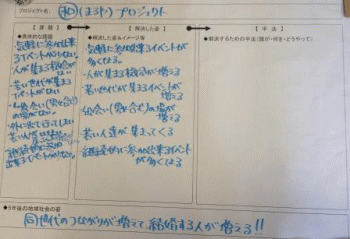 プロジェクト名： プロジェクト
【課題】
●具体的な課題
気軽に参加出来る
イベントが少ない。
人が集まる機会が
ない
若い世代が集まる
イベントがない
出会い(男女)
の場がない。
外に出て行ってしまい
【解決した姿】
●解決した姿&イメージ等
・気軽に参加出来るイベントが
多くなる。
・人が集まる機会が増える
・若い世代が集まるイベントが
増える
・出会い(男女)の場が
増える
・若い人達が集まってくる
・継続的に参加出来るイベント
が多くなる
【手法】
●解決するための手法(誰が・何を・どうやって)
●5年後の地域社会の姿
同世代のつながりが増えて、結婚する人が増える!!